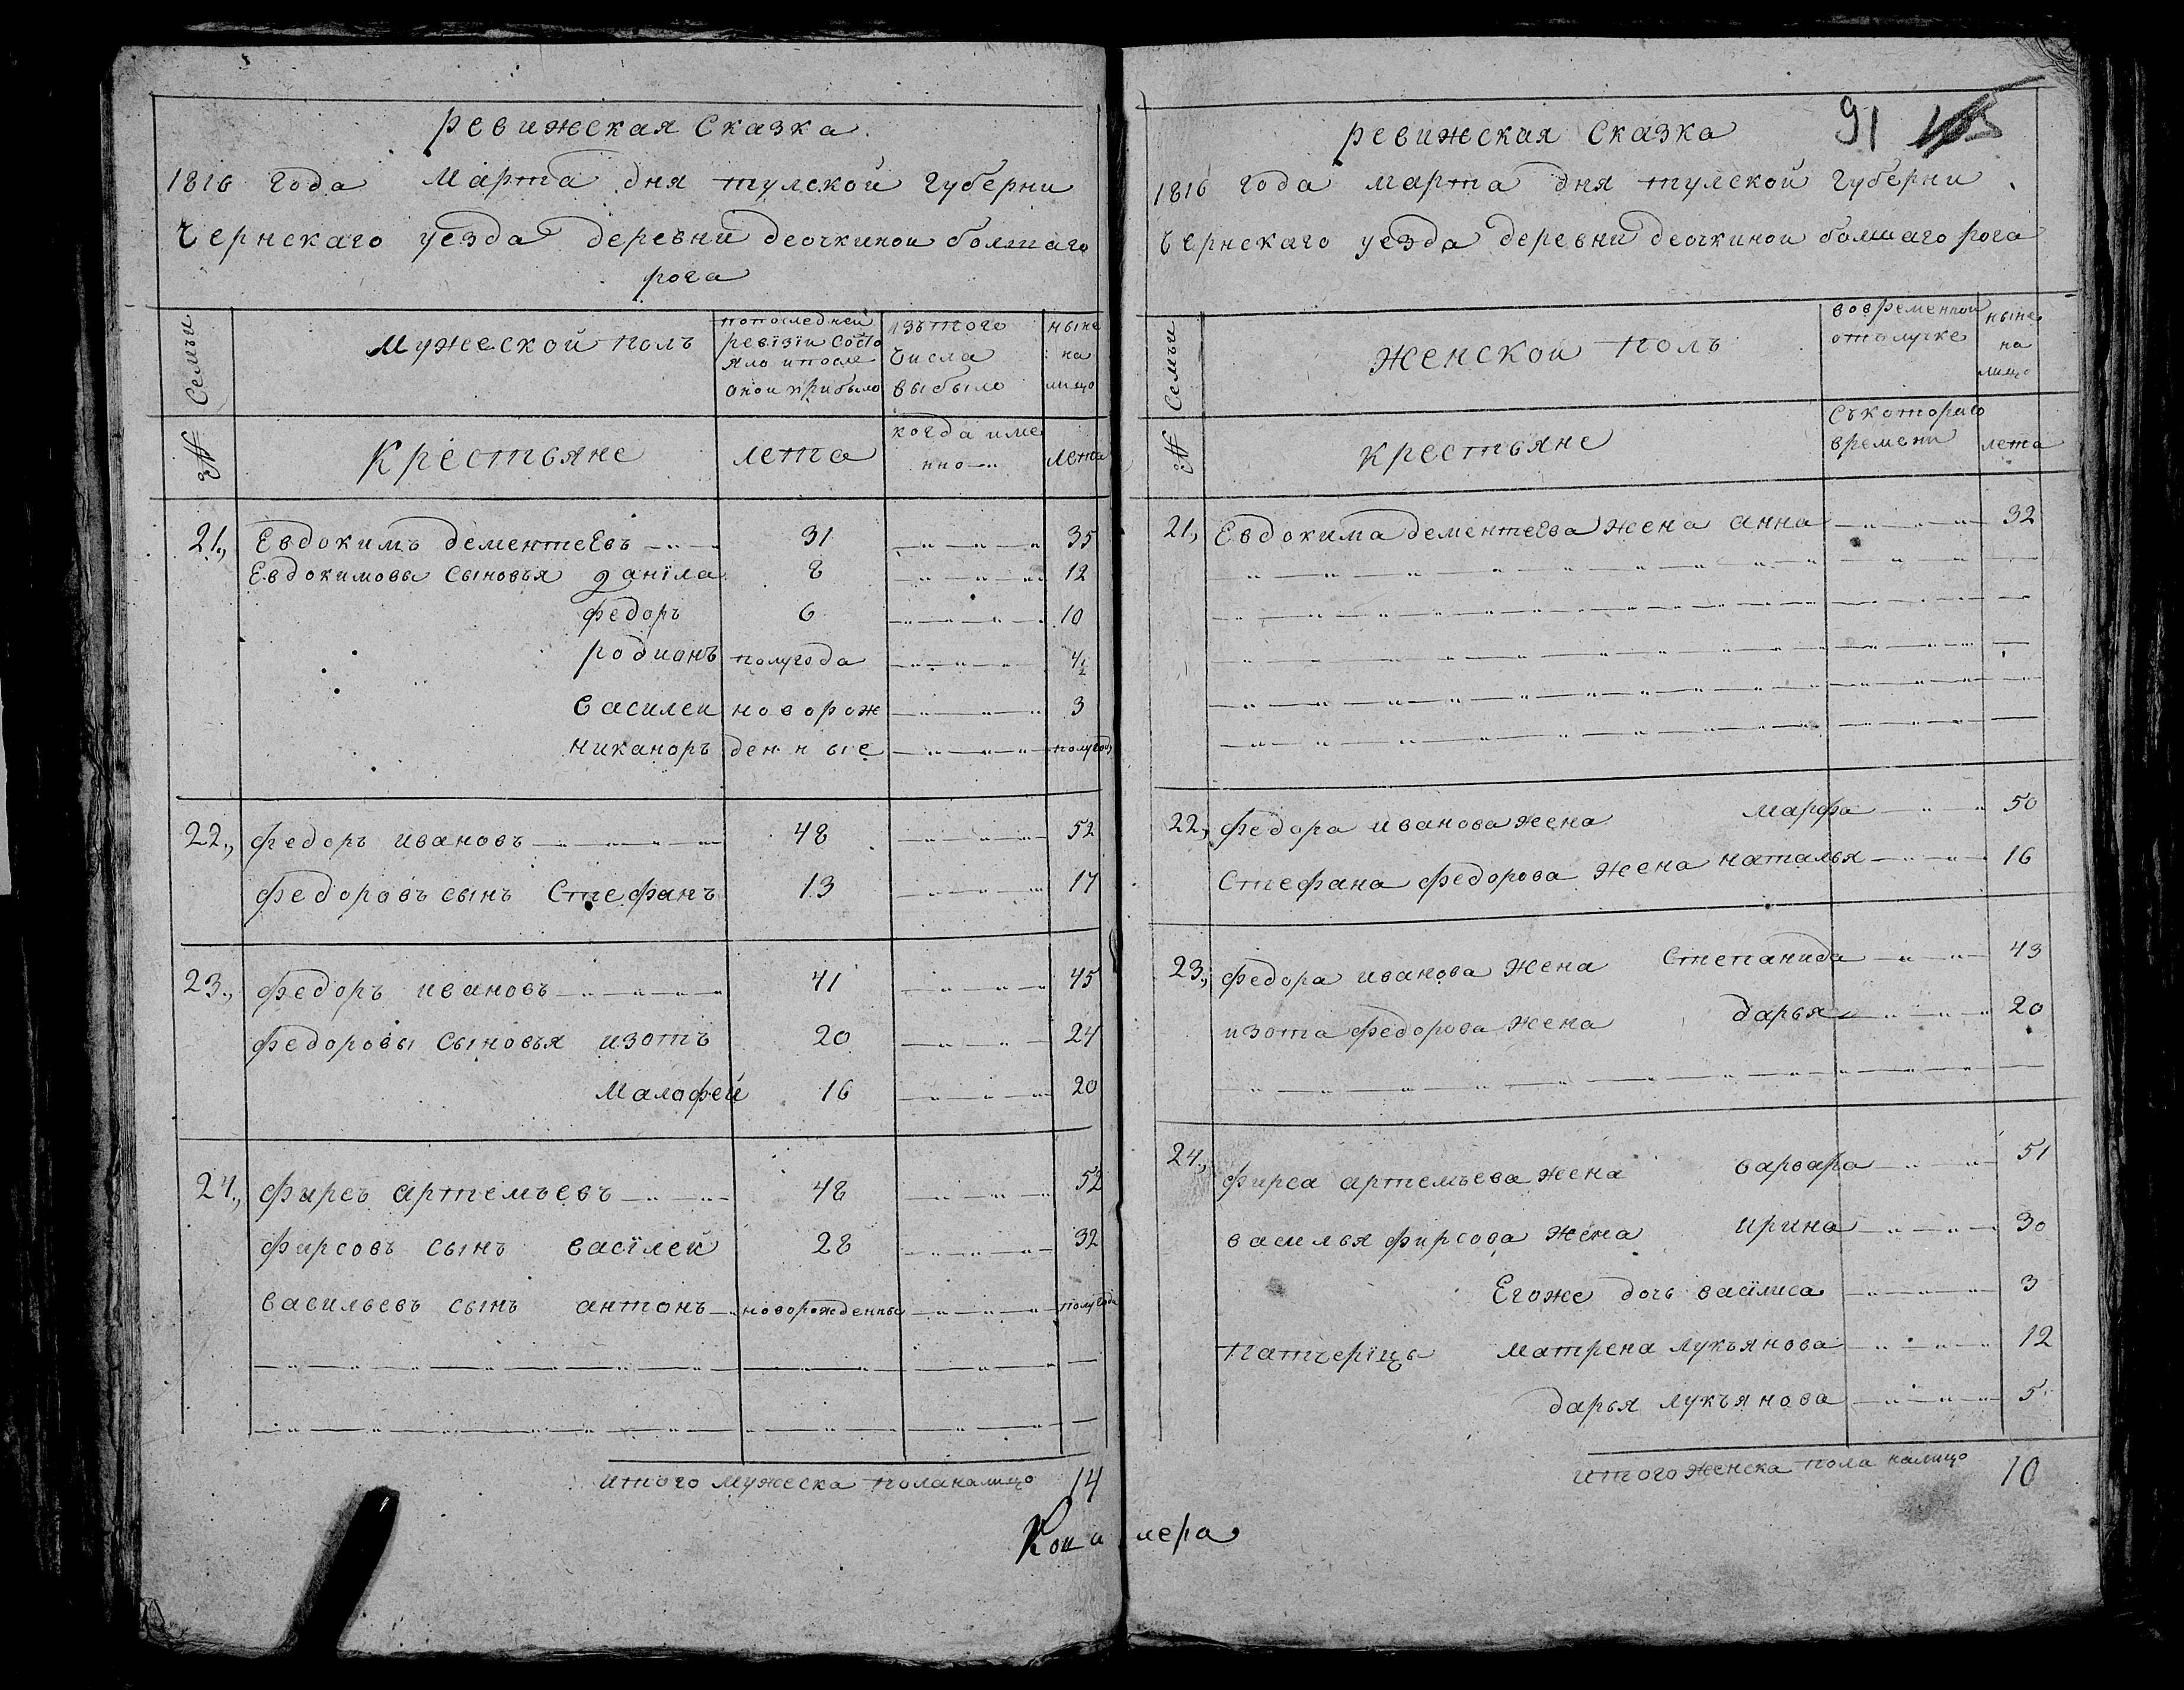 ревижская сказка
1816 года Марта дня тулской губерни
Чернскаго уезда деревни деочкинои болшаго
рога
Семьи
Мужеской полъ
попоследней
ревiзiи состо
яло и после
оной прибыло
изътого
числа
выбыло
ныне
на
лицо
№
Крестьяне
лета
когда име
нно
лета
21., Евдокимъ дементеЕвъ 31 35
Евдокимовы сыновья данiла 8 12
федоръ 6 10
родионъ полугода 4½
василеи новорож 3
никаноръ денные полугода
22., федоръ ивановъ 48 52
федоровъ сынъ Стефанъ 13 17
23., федоръ ивановъ 41 45
федоровы сыновья изотъ 20 24
Малофей 16 20
24., фирсъ артемьевъ 48 52
фирсовъ сынъ васiлеи 28 32
васильевъ сынъ антонъ новорожденны полугода
итого мужеска пола налицо 14
91
ревижская сказка
1816 года марта дня тулской губерни
Чернскаго уезда деревни деочкинои болшаго рога
Семьи
Женской полъ
вовременнои
отлучке
ныне
на
лицо
№
крестьяне
съкотораго
времени
лета
21, Евдокима дементеЕва жена анна 32
22, федора иванова жена марфа 50
Стефана федорова жена наталья 16
23., федора иванова жена Степанида 43
изота федорова жена дарья 20
24., фирса артемьева жена варвара 51
василья фирсова жена ирина 30
Егоже дочь васiлиса 3
патчерiцы матрена лукъянова 12
дарья лукъянова 5
итого женска пола налицо 10